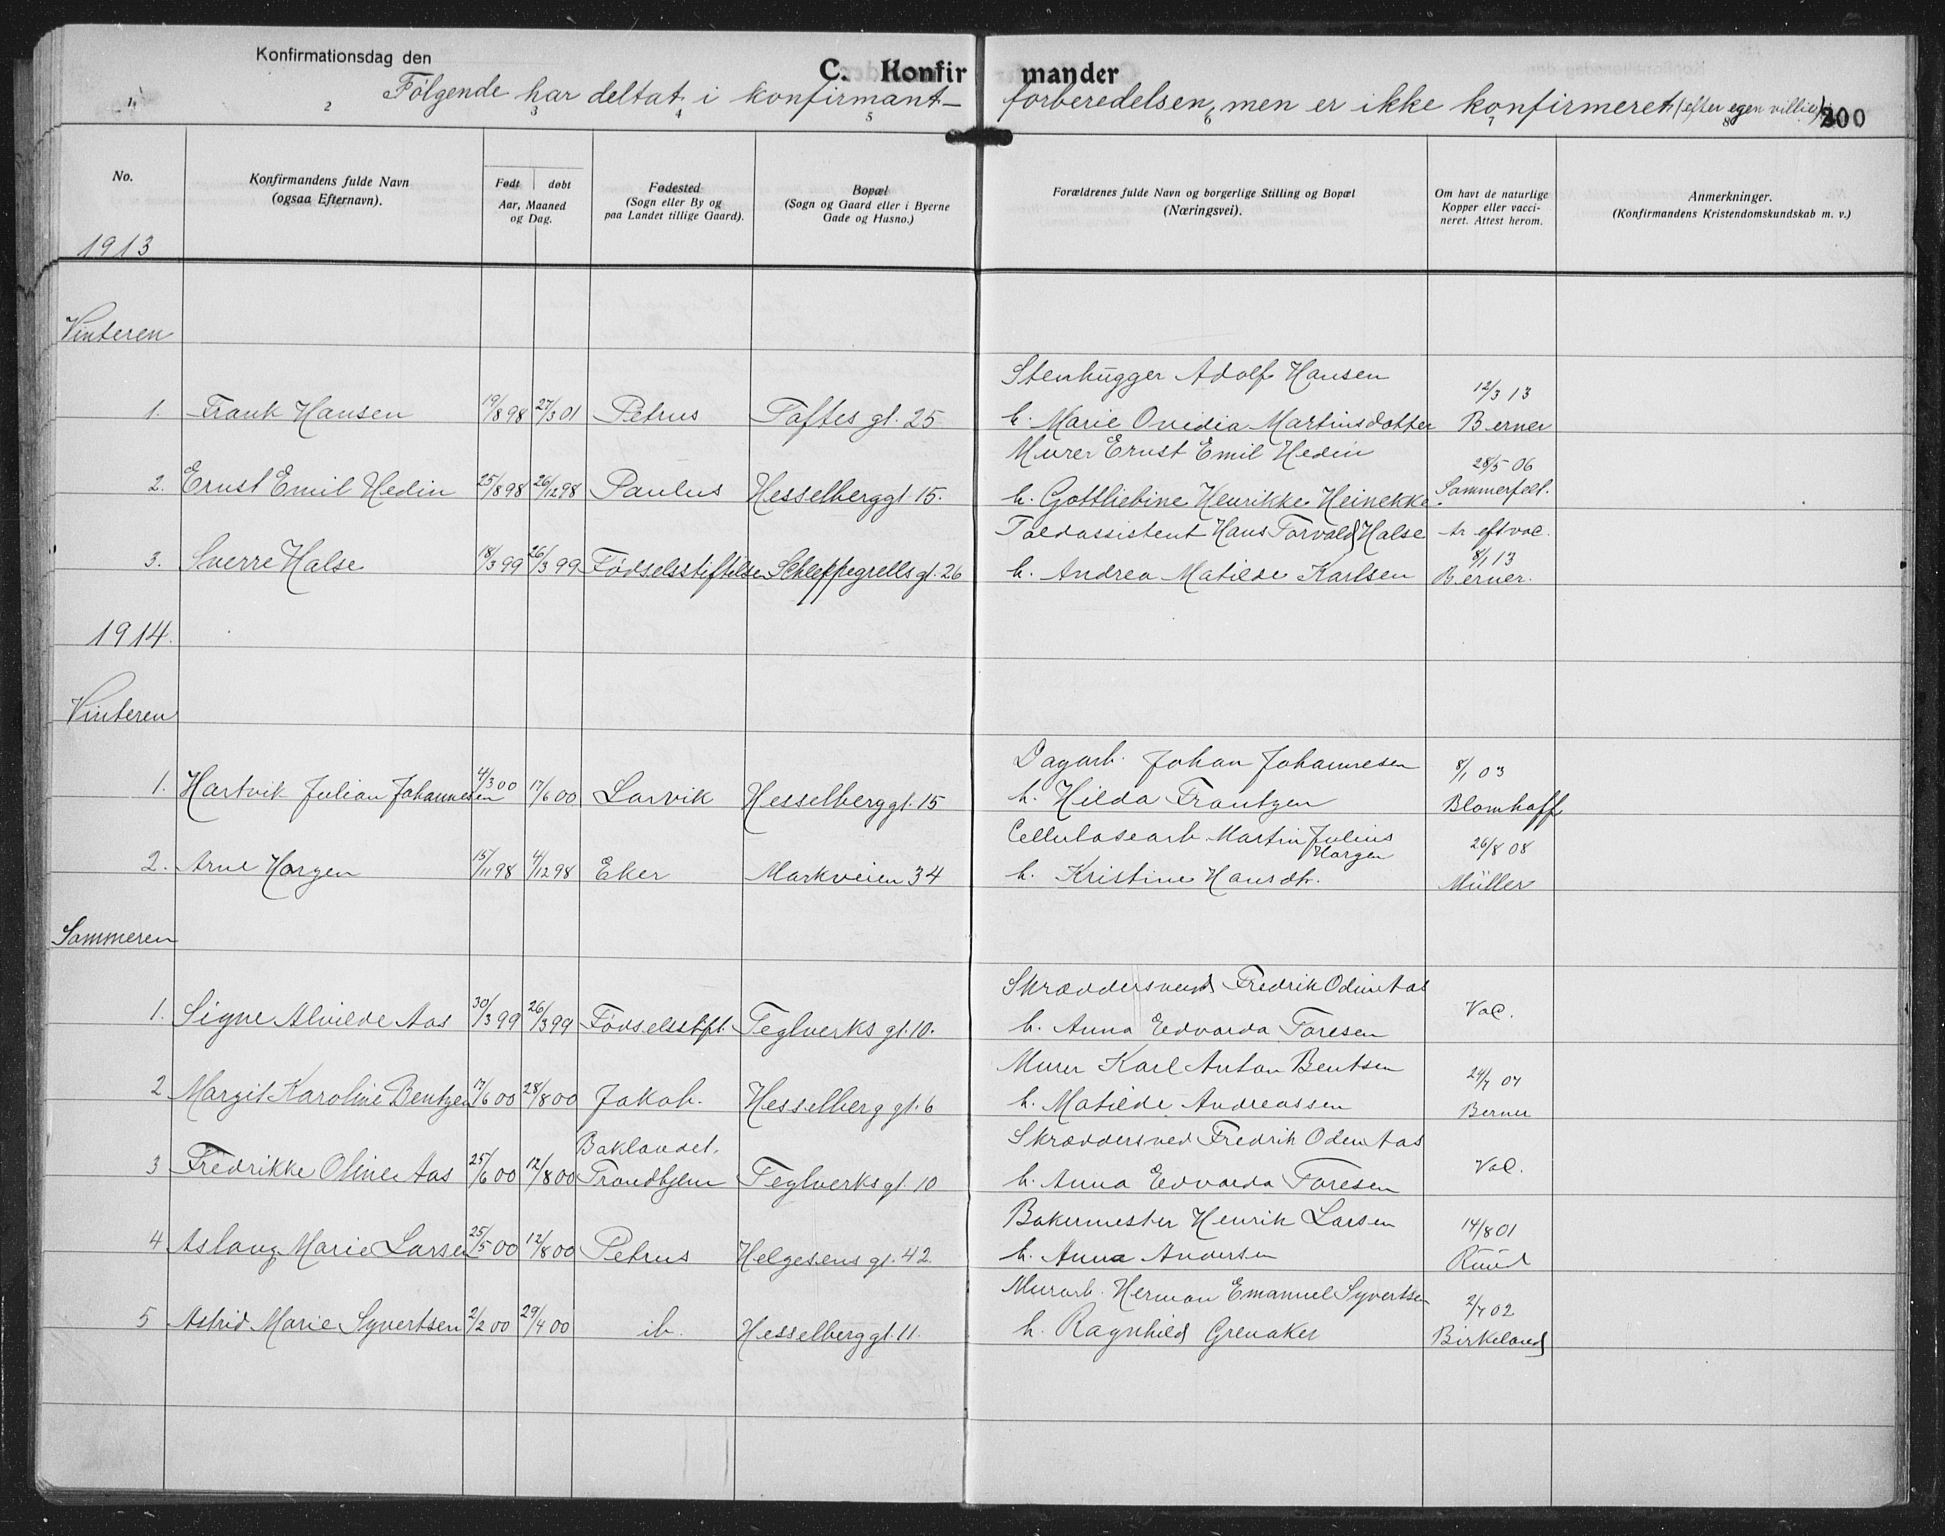 Konfirmationsdag den
C. Konfirmander
Følgende har deltat i konfirmant- forberedelsen, men er ikke konfirmeret (efter egen villie)
200
1 2 3 4 5 6 7 8
No.
Konfirmandens fulde Navn
(ogsaa Efternavn).
Født døbt
Aar, Maaned
og Dag.
Fødested
(Sogn eller By og
paa Landet tillige Gaard).
Bopæl
(Sogn og Gaard eller i Byerne
Gade og Husno.)
Forældrenes fulde Navn og borgerlige Stilling og Bopæl
(Næringsvei).
Om havt de naturlige
Kopper eller vacci-
neret. Attest herom.
Anmerkninger.
(Konfirmandens Kristendomskundskab m. v.)
1913
Vinteren
Stenhugger Adolf Hansen 12/3 13
1. Frank Hansen 19/8 98 27/3 01 Petrus Toftes gt. 25 h. Marie Ovidia Martinsdotter Berner
Murer Ernst Emil Hedin 28/5 06
2. Ernst Emil Hedin 25/8 98 26/12 98 Paulus Hesselberggt. 15. h. Gottliebine Henrikke Heinekke Sommerfelt.
Toldassistent Hans Torvald Halse tr. eft vac. 8/1 13
3. Sverre Halse 18/3 99 26/3 99 Fødselsstiftelsen Schleppegrells gt. 26 h. Andrea Matilde Karlsen Berner.
1914.
Vinteren
Dagarb. Johan Johannesen 8/1 03
1. Hartvik Julian Johannesen 4/3 00 17/6 00 Larvik Hesselberggt. 15 h. Hilda Frantzen Blomhoff
Cellulosearb. Martin Julius Horgen 26/8 08
2. Arne Horgen 15/11 98 4/12 98 Eker Markveien 34 h. Kristine Hansdtr. Müller
Sommeren
Skræddersvend Fredrik Odin Aas Vac.
1. Signe Alvilde Aas 30/3 99 26/3 99 Fødselsstift. Teglverks gt. 10. h. Anna Edvarda Toresen
Murer Karl Anton Bentsen 24/7 07
2 Margit Karoline Bentzen 17/6 00 28/8 00 Jakob. Hesselberg gt. 6 h. Matilde Andreassen Berner
Skræddersved Fredrik Oden Aas Vac.
3 Fredrikke Oline Aas 25/6 00 12/8 00 Baklandet, Trondhjem Teglverks gt 10 h. Anna Edvarda Toresen
Bakermester Henrik Larsen 14/8 01
4 Aslaug Marie Larsen 25/5 00 12/8 00 Petrus Helgesens gt. 42. h. Anna Andersen Ruud
Murarb. Herman Emanuel Syvertsen 2/7 02
5 Astrid Marie Syvertsen 2/2 00 29/4 00 ib. Hesselberggt. 11. h. Ragnhild Grenaker Birkeland